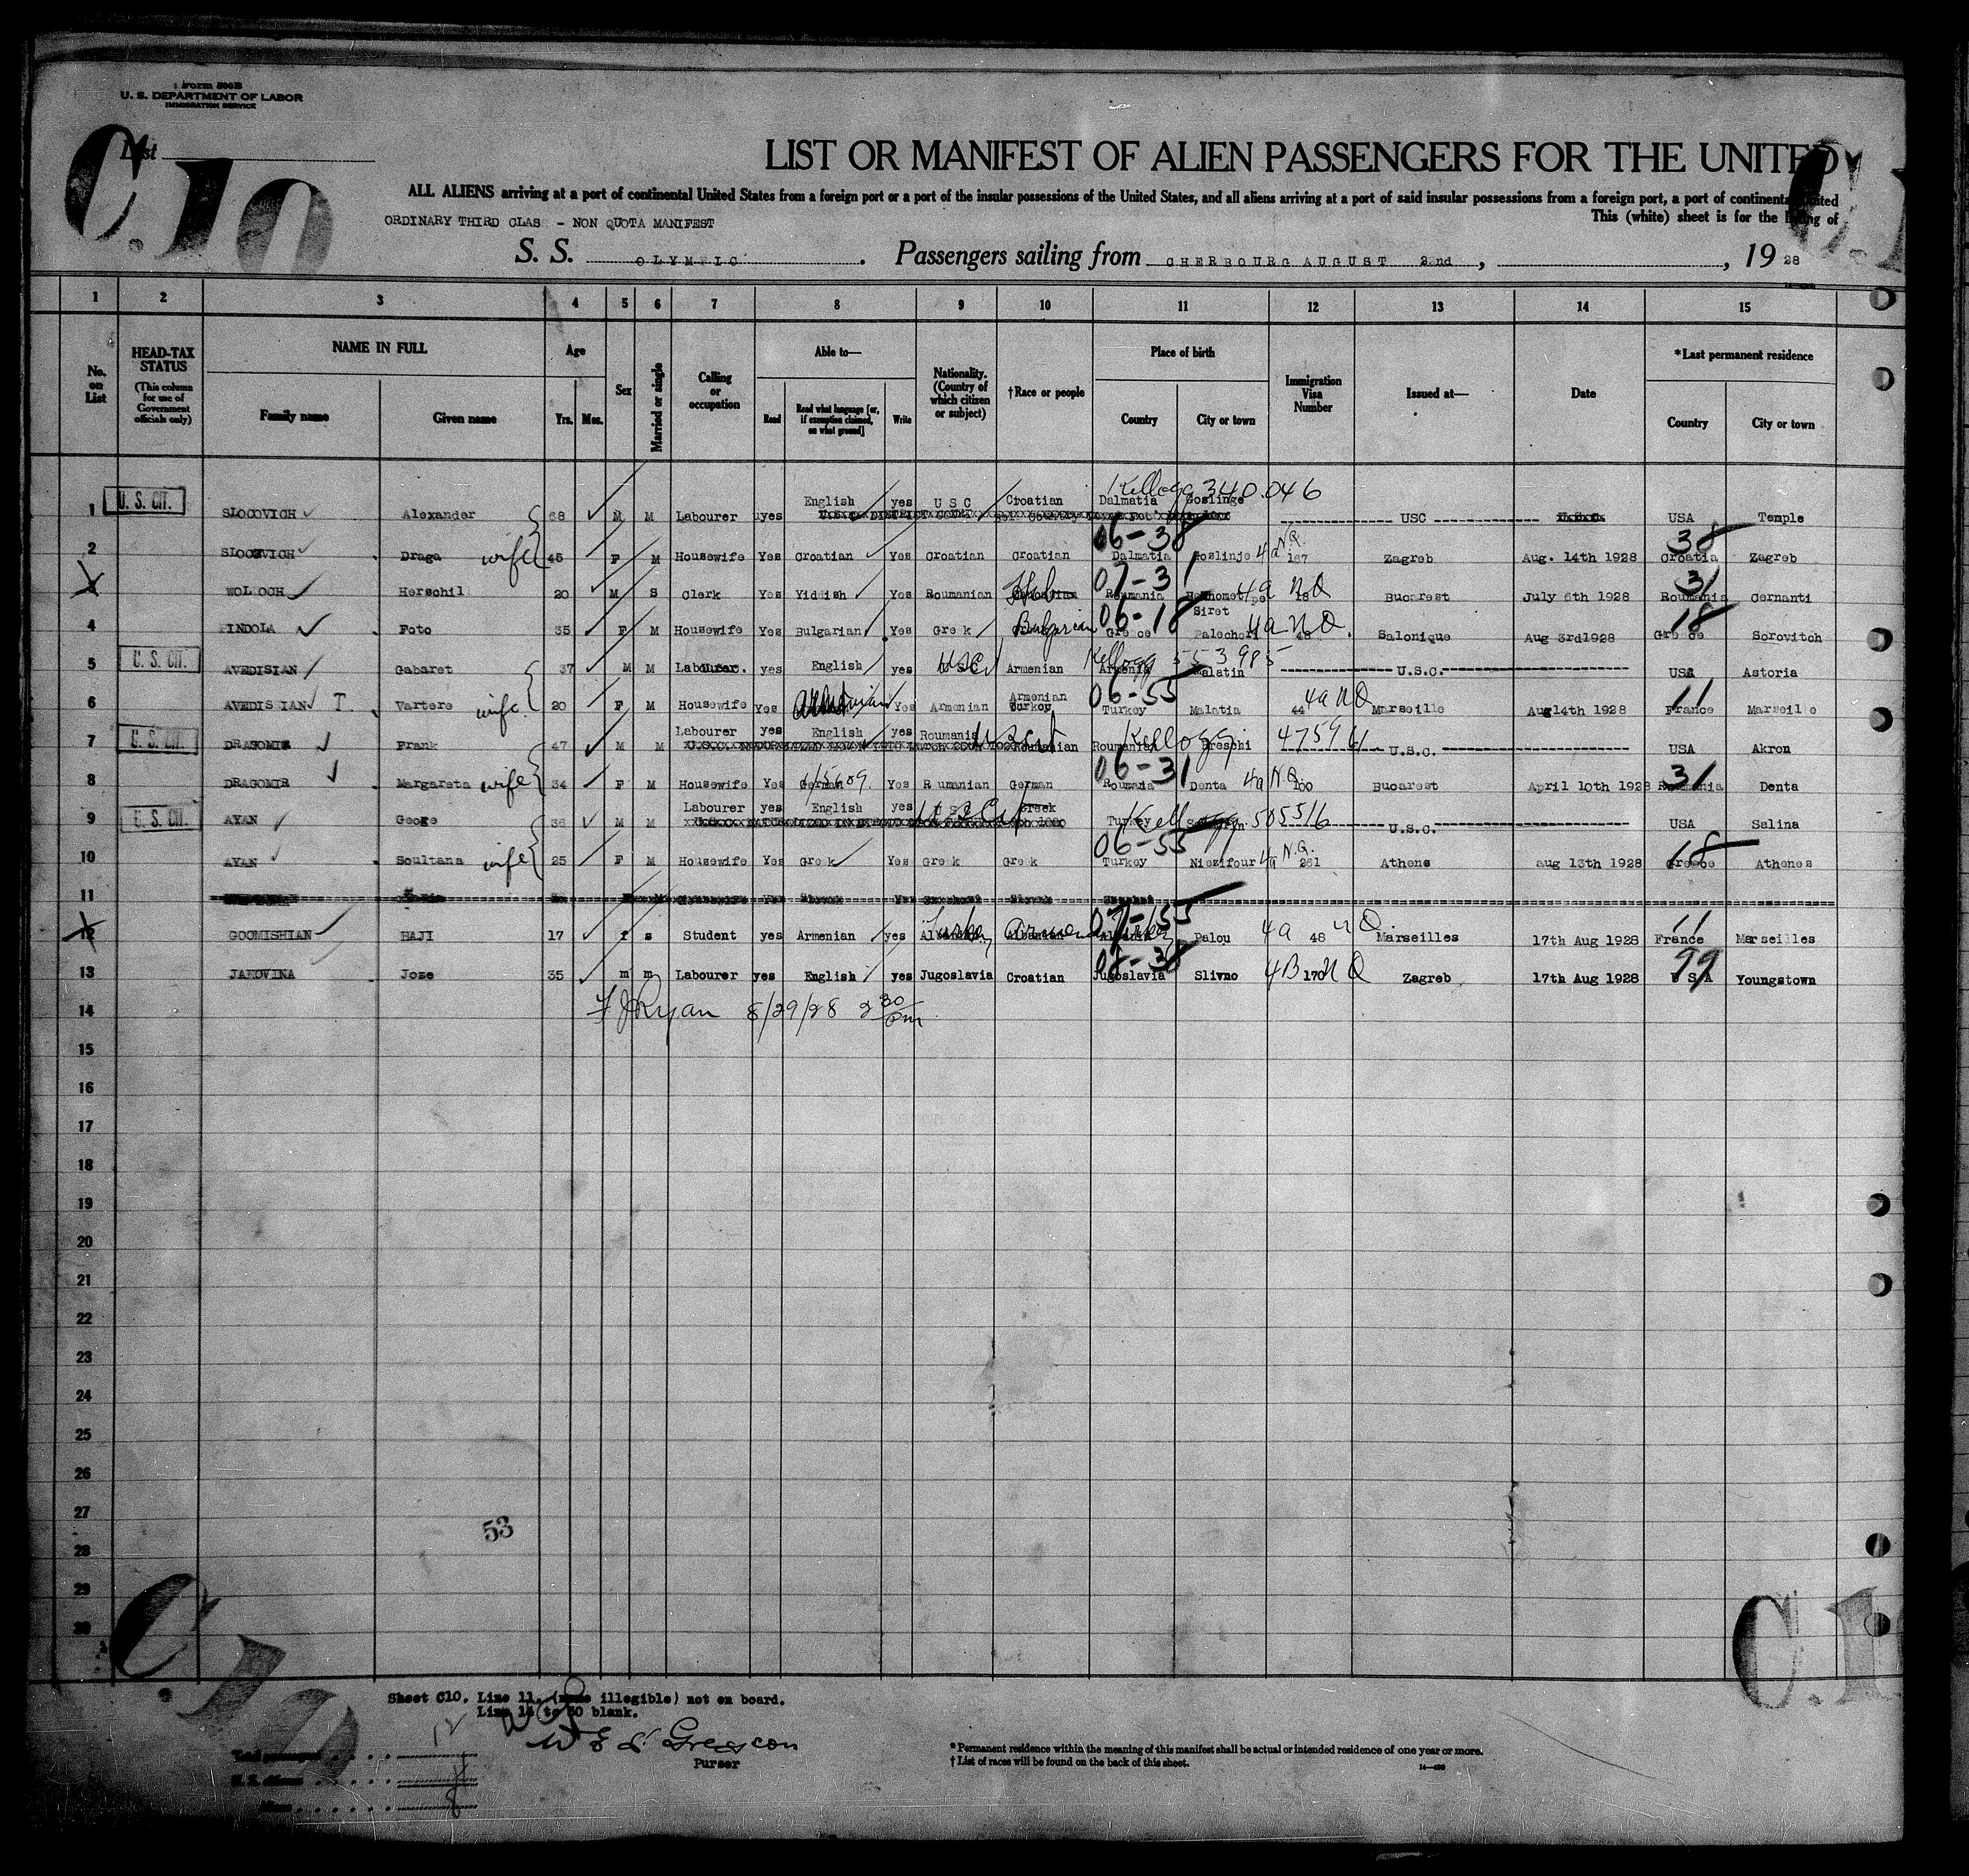 Form 500B
U. S. DEPARTMENT OF LABOR
IMMIGRATION SERVICE
List
C.10
LIST OR MANIFEST OF ALIEN PASSENGERS FOR THE UNITED
ALL ALIENS arriving at a port of continental United States from a foreign port or a port of the insular possessions of the United States, and all aliens arriving at a port of said insular possessions from a foreign port, a port of continental United
ORDINARY THIRD CLAS - NON QUOTA MANIFEST
This (white) sheet is for the listing of
S. S. OLYMPIC. Passengers sailing from CHERBOURG AUGUST 22nd, , 19 28
1 2 3 4 5 6 7 8 9 10 11 12 13 14 15
No. on List
HEAD-TAX STATUS (This column for use of Government officials only)
NAME IN FULL Family name Given name
Age Yrs. Mos.
Sex
Married or single
Calling or occupation
Able to— Read Read what language [or, if exemption claimed, on what ground] Write
Nationality. (Country of which citizen or subject)
†Race or people
Place of birth Country City or town
Immigration Visa Number
Issued at—
Date
*Last permanent residence Country City or town
1 U. S. CIT. SLOCOVICH Alexander 68 M M Labourer yes English yes U S C Croatian Dalmatia Goslinge Kellogg 340.046 USC USA Temple
2 SLOCOVICH Draga wife 45 F M Housewife Yes Croatian Yes Croatian Croatian 06-38 Dalmatia Goslinje 4a N.Q. 187 Zagreb Aug. 14th 1928 38 Croatia Zagreb
3 WOLLOCH Herschil 20 M S Clerk Yes Yiddish Yes Roumanian 07-31 Roumania Siret 4a NQ Bucarest July 6th 1928 31 Roumania Cernanti
4 PINDOLA Foto 35 F M Housewife Yes Bulgarian Yes Gre k Bulgarian 06-18 Greece Palechori 4a NQ 48 Salonique Aug 3rd1928 18 Greece Sorovitch
5 U. S. CIT. AVEDISIAN Gabaret 37 M M Labourer. yes English yes USC Armenian Armenia Malatin Kellogg 553985 U.S.C. USA Astoria
6 AVEDISIAN T. Vartere wife 20 F M Housewife Yes Armenian Yes Armenian Armenian Turkey 06-55 Turkey Malatia 44 4a NQ Marseille Aug14th 1928 11 France Marseille
7 U. S. CIT. DRAGOMIR Frank 47 M M Labourer yes English yes Roumania US Cit Roumanian Roumania Breschi Kellogg 475961 U.S.C. USA Akron
8 DRAGOMIR Margareta wife 34 F M Housewife Yes German Yes R umanian German 06-31 Roumania Denta 4a N.Q. 100 Bucarest April 10th 1928 31 Roumania Denta
9 U. S. CIT. AYAN Geoge 36 M M Labourer yes English yes US Cit Greek Turkey Kellogg 505516 U.S.C. USA Salina
10 AYAN Soultana wife 25 F M Housewife Yes Gre k Yes Greek Greek 06-55 Turkey Niezifour 4a N.Q. 261 Athens aug 13th 1928 18 Greece Athenes
11
12 GOOMISHIAN HAJI 17 f s Student yes Armenian yes Turkey Armenian 07-55 Turkey Palou 4a 48 NQ Marseilles 17th Aug 1928 11 France Marseilles
13 JAKOVINA Jose 35 m m Labourer yes English yes Jugoslavia Croatian 08-38 Jugoslavia Slivno 4B 170 NQ Zagreb 17th Aug 1928 99 USA Youngstown
14 F J Ryan 8/29/28 2 30 pm
15
16
17
18
19
20
21
22
23
24
25
26
27
53
28
29
30
C.10
C.1
Sheet C10. Line 11, (name illegible) not on board.
Line 14 to 30 blank.
Purser
Total passengers 12
U. S. citizens 4
Aliens 8
* Permanent residence within the meaning of this manifest shall be actual or intended residence of one year or more.
† List of races will be found on the back of this sheet.